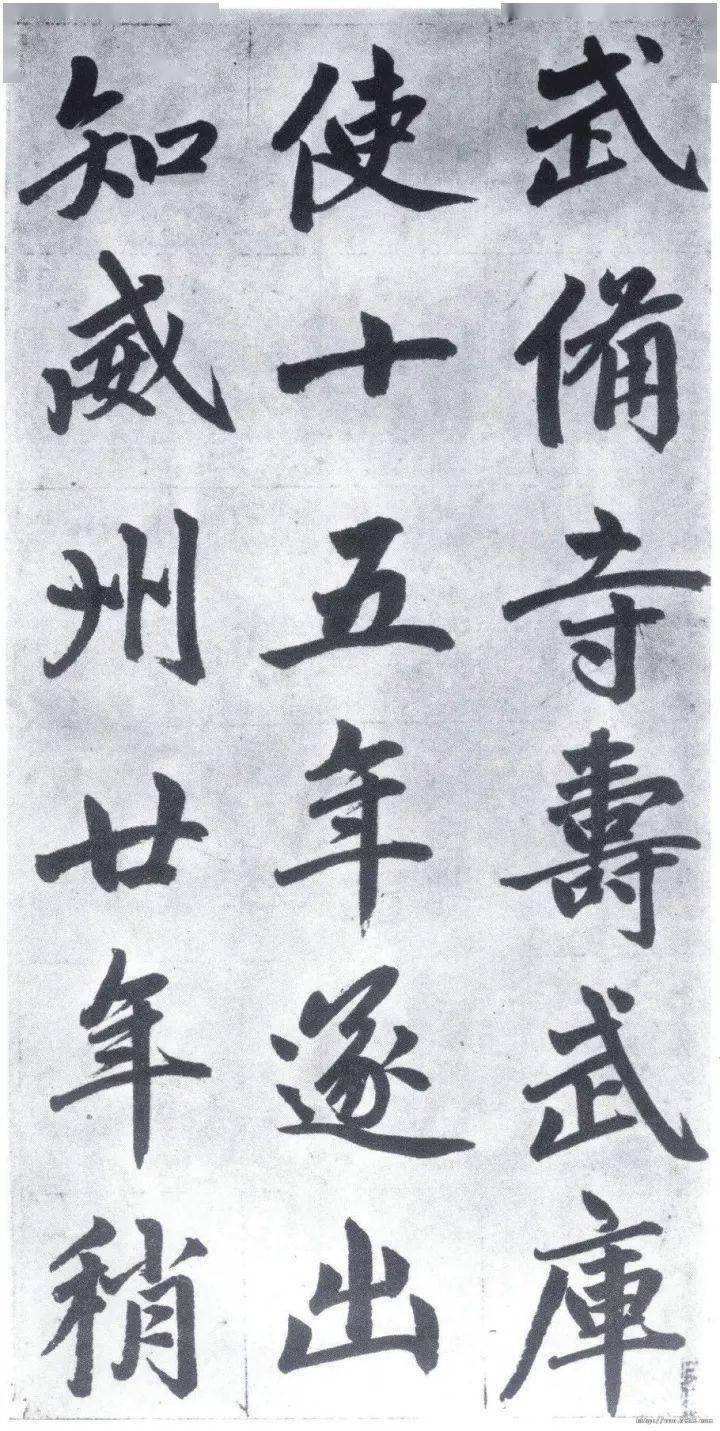 武備寺壽武庫
使十五年遂出
知威州廿年稍